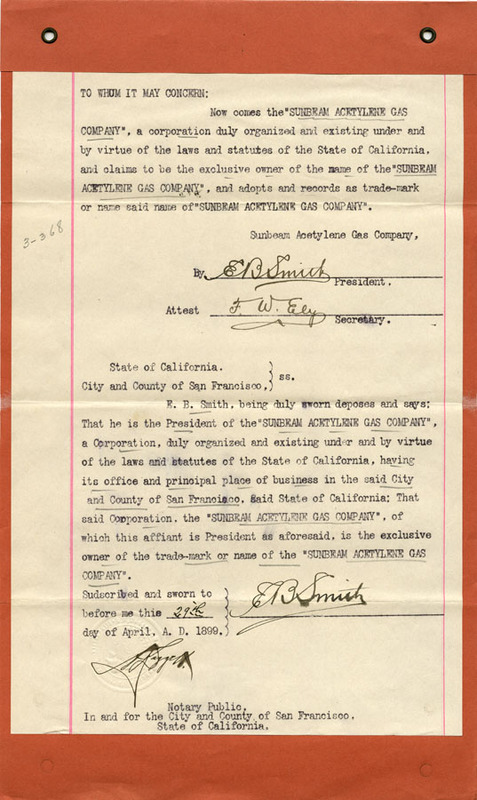 TO WHUM IT MAY CONCERN:
Now comes the"SUNBEAM ACETYLENE GAS
COMPANY", a corporation duly organized and existing under and
by virtue of the laws and statutes of the State of California,
and claims to be the exclusive owner of the name of the"SUNBEAM
ACETYLENE GAS COMPANY", and adopts and records as trade-mark
or name said name of"SUNBEAM ACETYLENE GAS COMPANY".
3-368
Sunbeam Acetylene Gas Company,
By E B Smith
President.
Attest F. W. Ely
Secretary.
State of California.
City and County of San Francisco, } ss.
E. B. Smith, being duly sworn deposes and says:
That he is the President of the"SUNBEAM ACETYLENE GAS COMPANY",
a Corporation, duly organized and existing under and by virtue
of the laws and statutes of the State of California, having
its office and principal place of business in the said City
and County of San Francisco. Said State of California; That
said Corporation. the "SUNBEAM ACETYLENE GAS COMPANY", of
which this affiant is President as aforesaid, is the exclusive
owner of the trade-mark or name of the "SUNBEAM ACETYLENE GAS
COMPANY".
Sudscribed and sworn to
before me this 29th } E B Smith
day of April. A. D. 1899.
Notary Public.
In and for the City and County of San Francisco.
State of California.